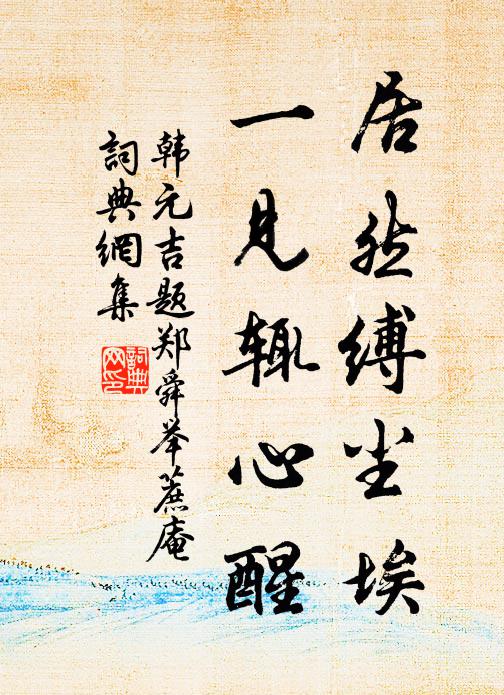 居然缚尘埃
一见辄心醒
韩元吉题郑舜举蔗庵
詞典網集
詞典网印